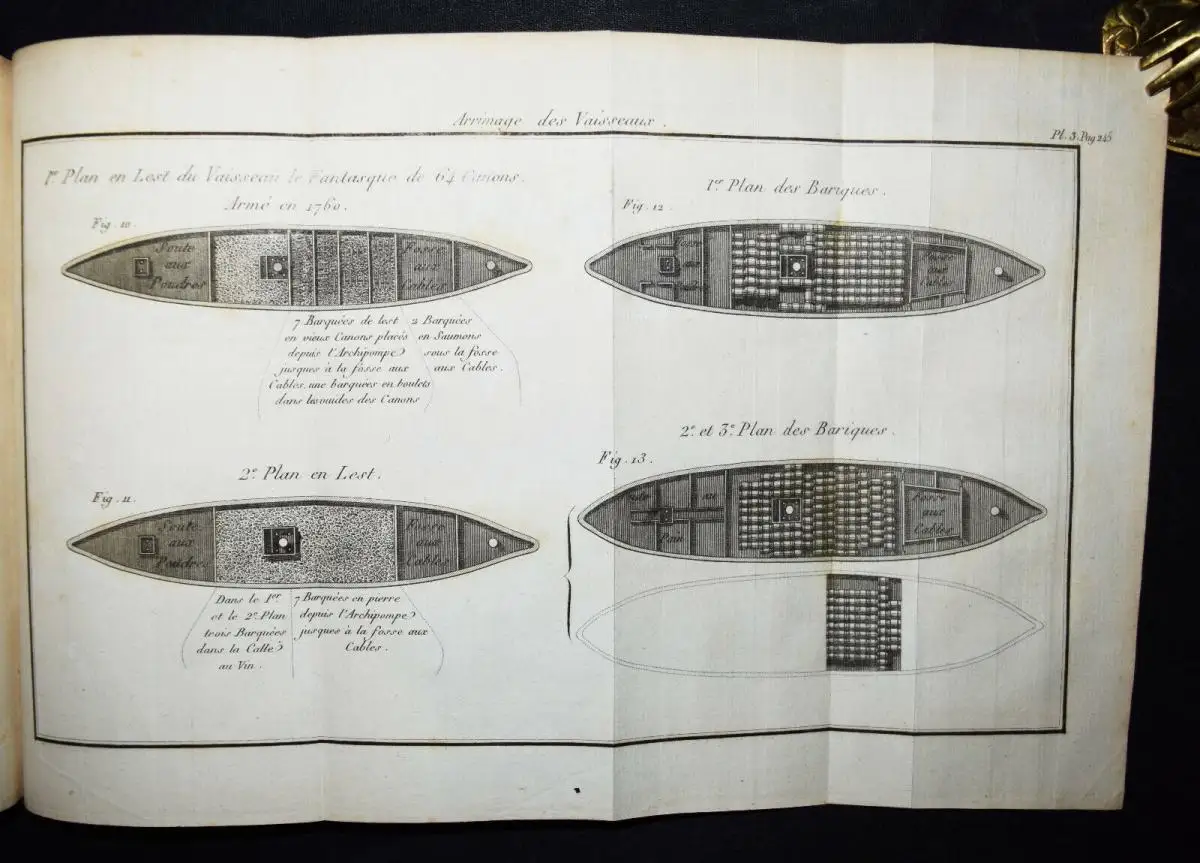 Arrimage des Vaisseaux.
Pl. 3. Pag 245
1er Plan en Lest du Vaisseau le Fantasque de 64 Canons.
Armé en 1760.
Fig. 10.
Soute
aux
Poudres
Fosse
aux
Cables
7 Barquées de lest
en vieux Canons placés
depuis l'Archipompe
jusques à la fosse aux
Cables. une barquées en boulets
dans les vuides des Canons
2 Barquées
en Saumons
sous la fosse
aux Cables.
1er Plan des Bariques.
Fig. 12.
Fosse
aux
Cables
2e Plan en Lest.
Fig. 11.
Soute
aux
Poudre
Fosse
aux
Cables
Dans le 1er
et le 2e Plan
trois Barquées
dans la Calle
au Vin.
7 Barquées en pierre
depuis l'Archipompe
jusques à la fosse aux
Cables.
2e et 3e Plan des Bariques.
Fig. 13.
au
Pain
Fosse
aux
Cables